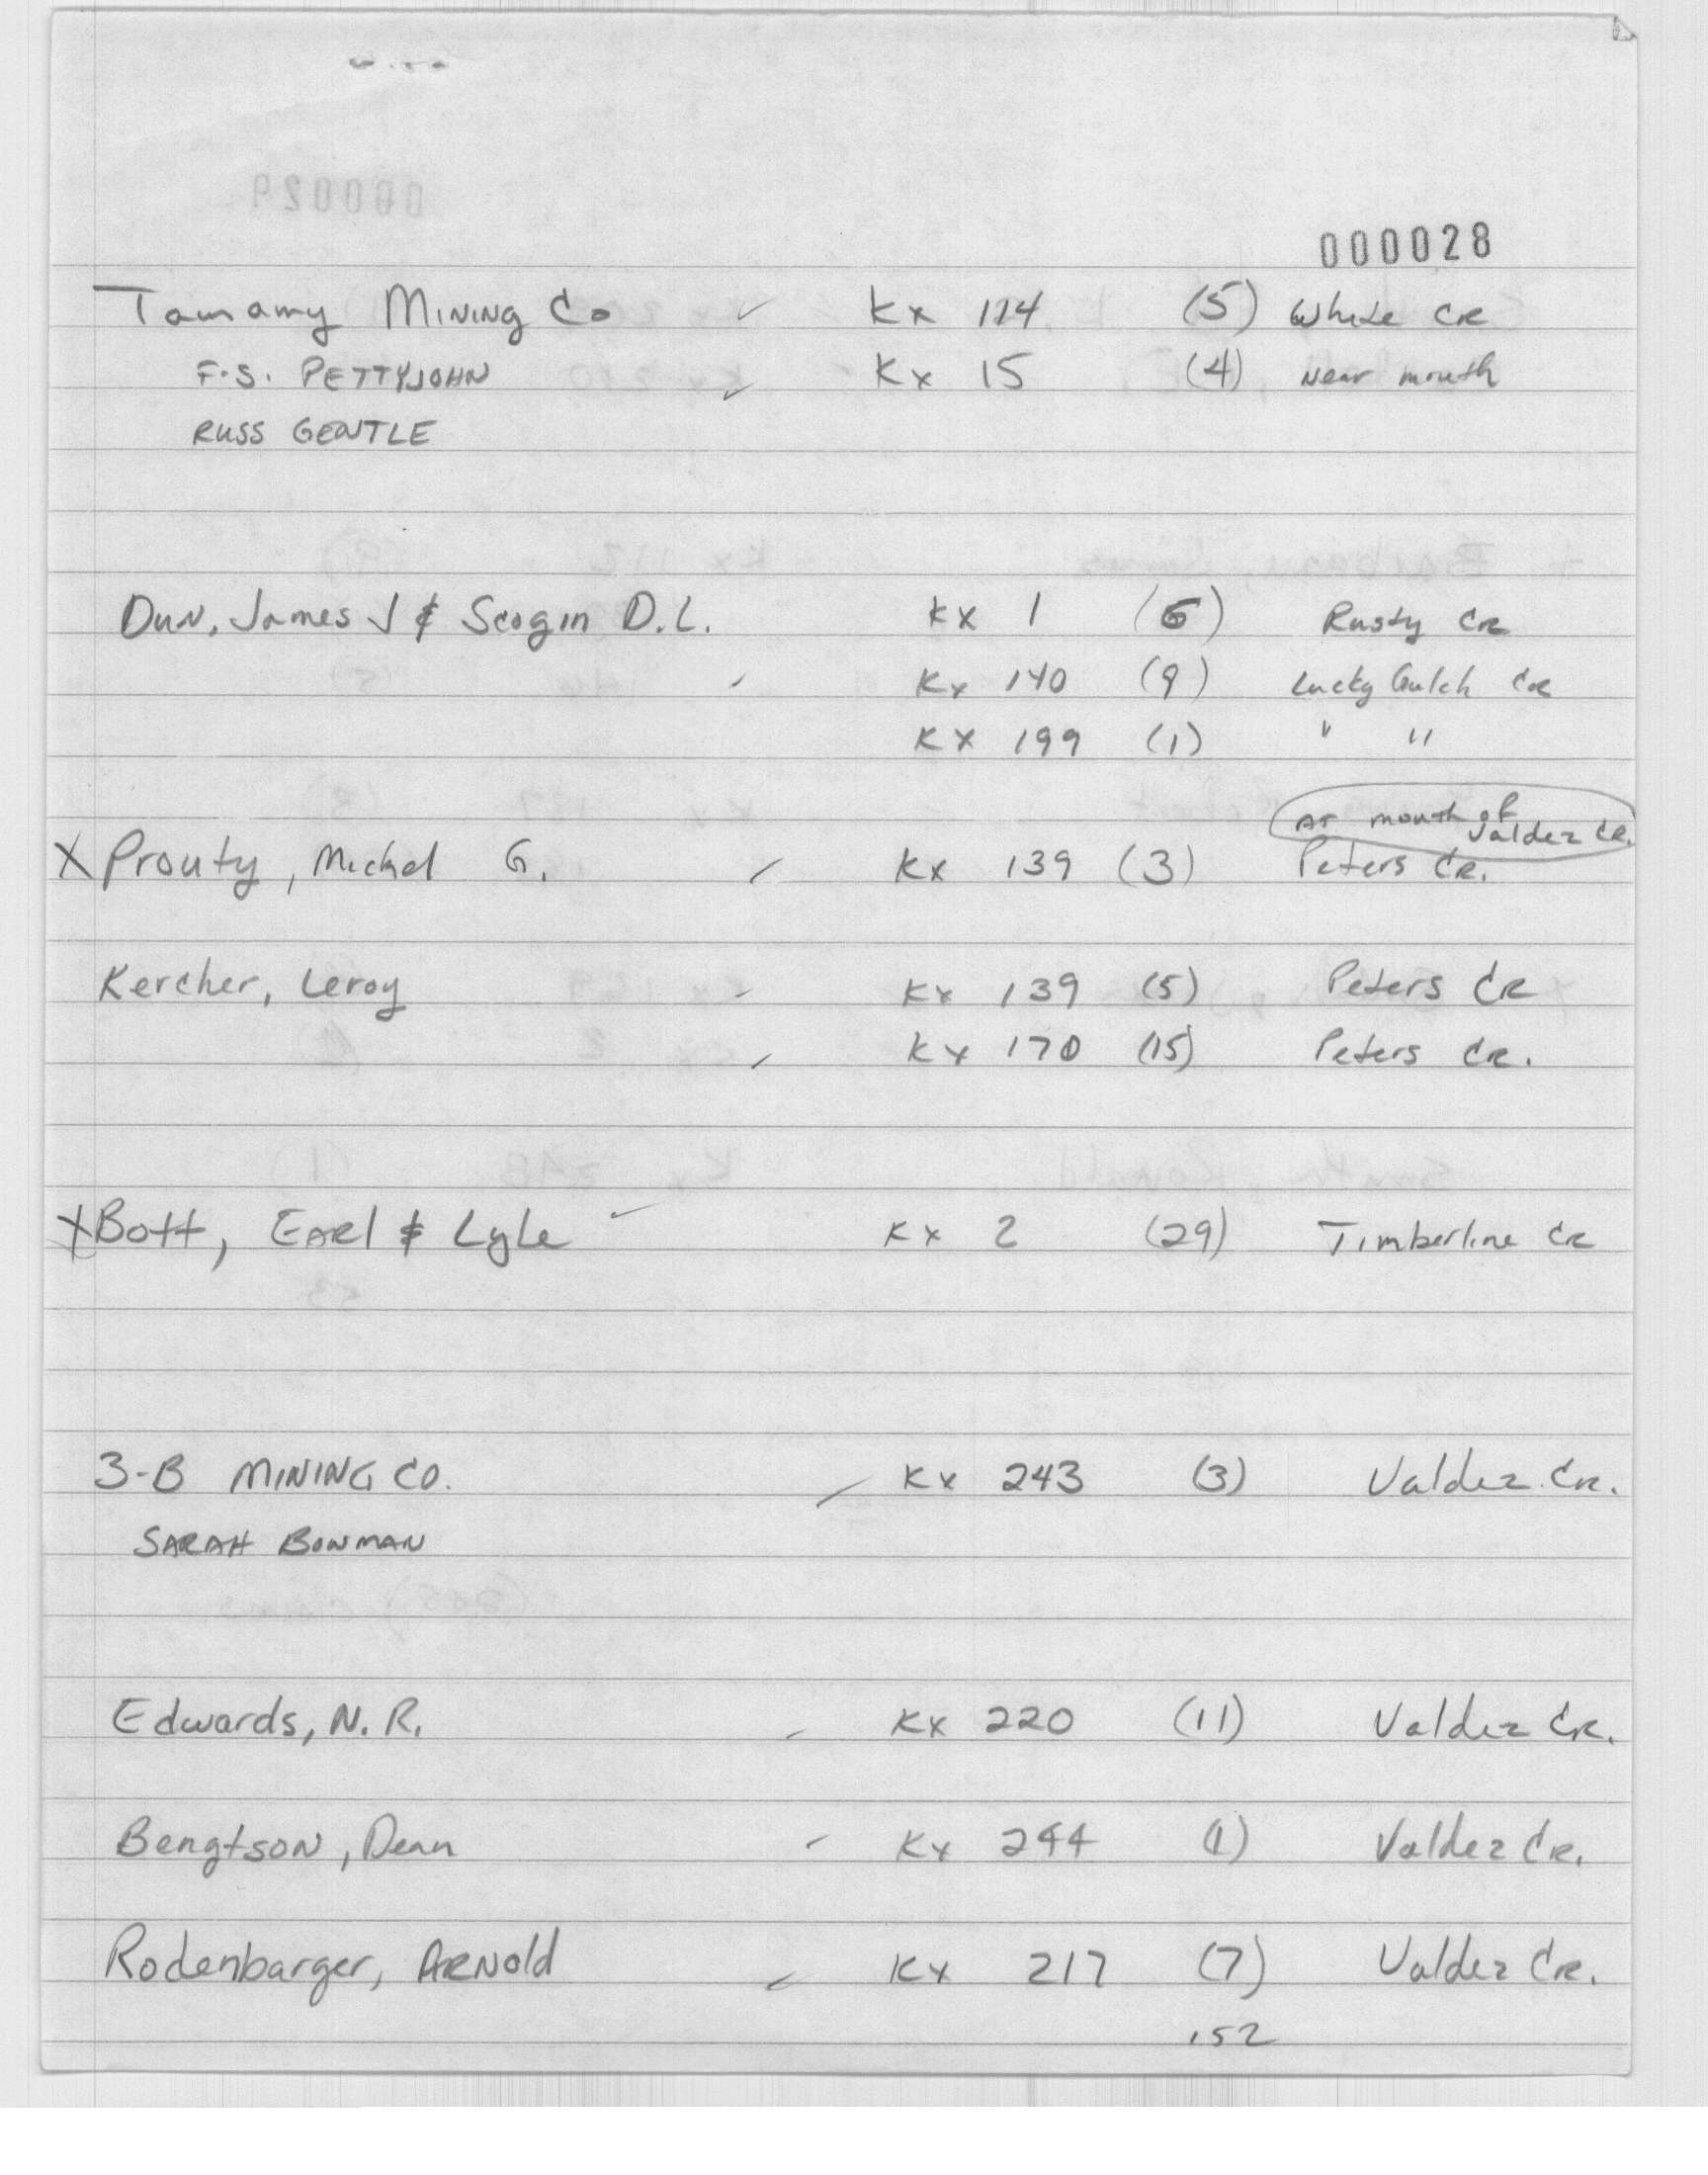 000028
Tamamy Mining Co ✓ Kx 114 (5) White CR
F.S. PETTYJOHN ✓ Kx 15 (4) Near mouth
RUSS GENTLE
Dun, James J & Scogin D.L. Kx 1 (6) Rusty CR
Kx 140 (9) Lucky Gulch CR
Kx 199 (1) " "
At mouth of Valdez CR.
X Prouty, Michel G. Kx 139 (3) Peters CR.
Kercher, Leroy Kx 139 (5) Peters CR
Kx 170 (15) Peters CR.
X Bott, Earl & Lyle Kx 2 (29) Timberline CR
3-B MINING CO. Kx 243 (3) Valdez CR.
SARAH BOWMAN
Edwards, N.R. Kx 220 (11) Valdez CR.
Bengtson, Dean Kx 244 (1) Valdez CR.
Rodenbarger, Arnold Kx 217 (7) Valdez CR.
152